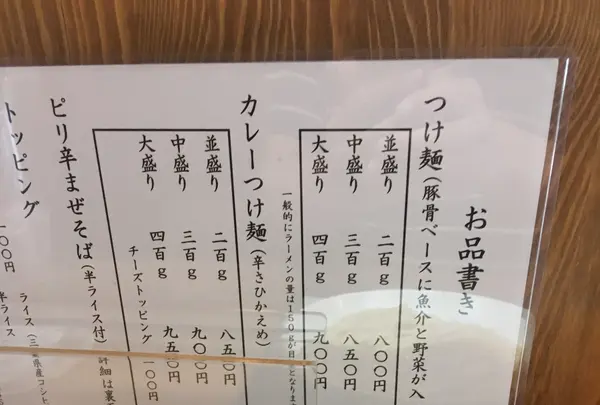 お品書き
つけ麺(豚骨ベースに魚介と野菜が入
並盛り 二百g 八〇〇円
中盛り 三百g 八五〇円
大盛り 四百g 九〇〇円
一般的にラーメンの量は150gが目
となります
カレーつけ麺(辛さひかえめ)
並盛り 二百g 八五〇円
中盛り 三百g 九〇〇円
大盛り 四百g 九五〇円
チーズトッピング 一〇〇円
ピリ辛まぜそば(半ライス付)
細は裏
トッピング 一〇〇円
ライス(三
県産コシヒ
半ライス